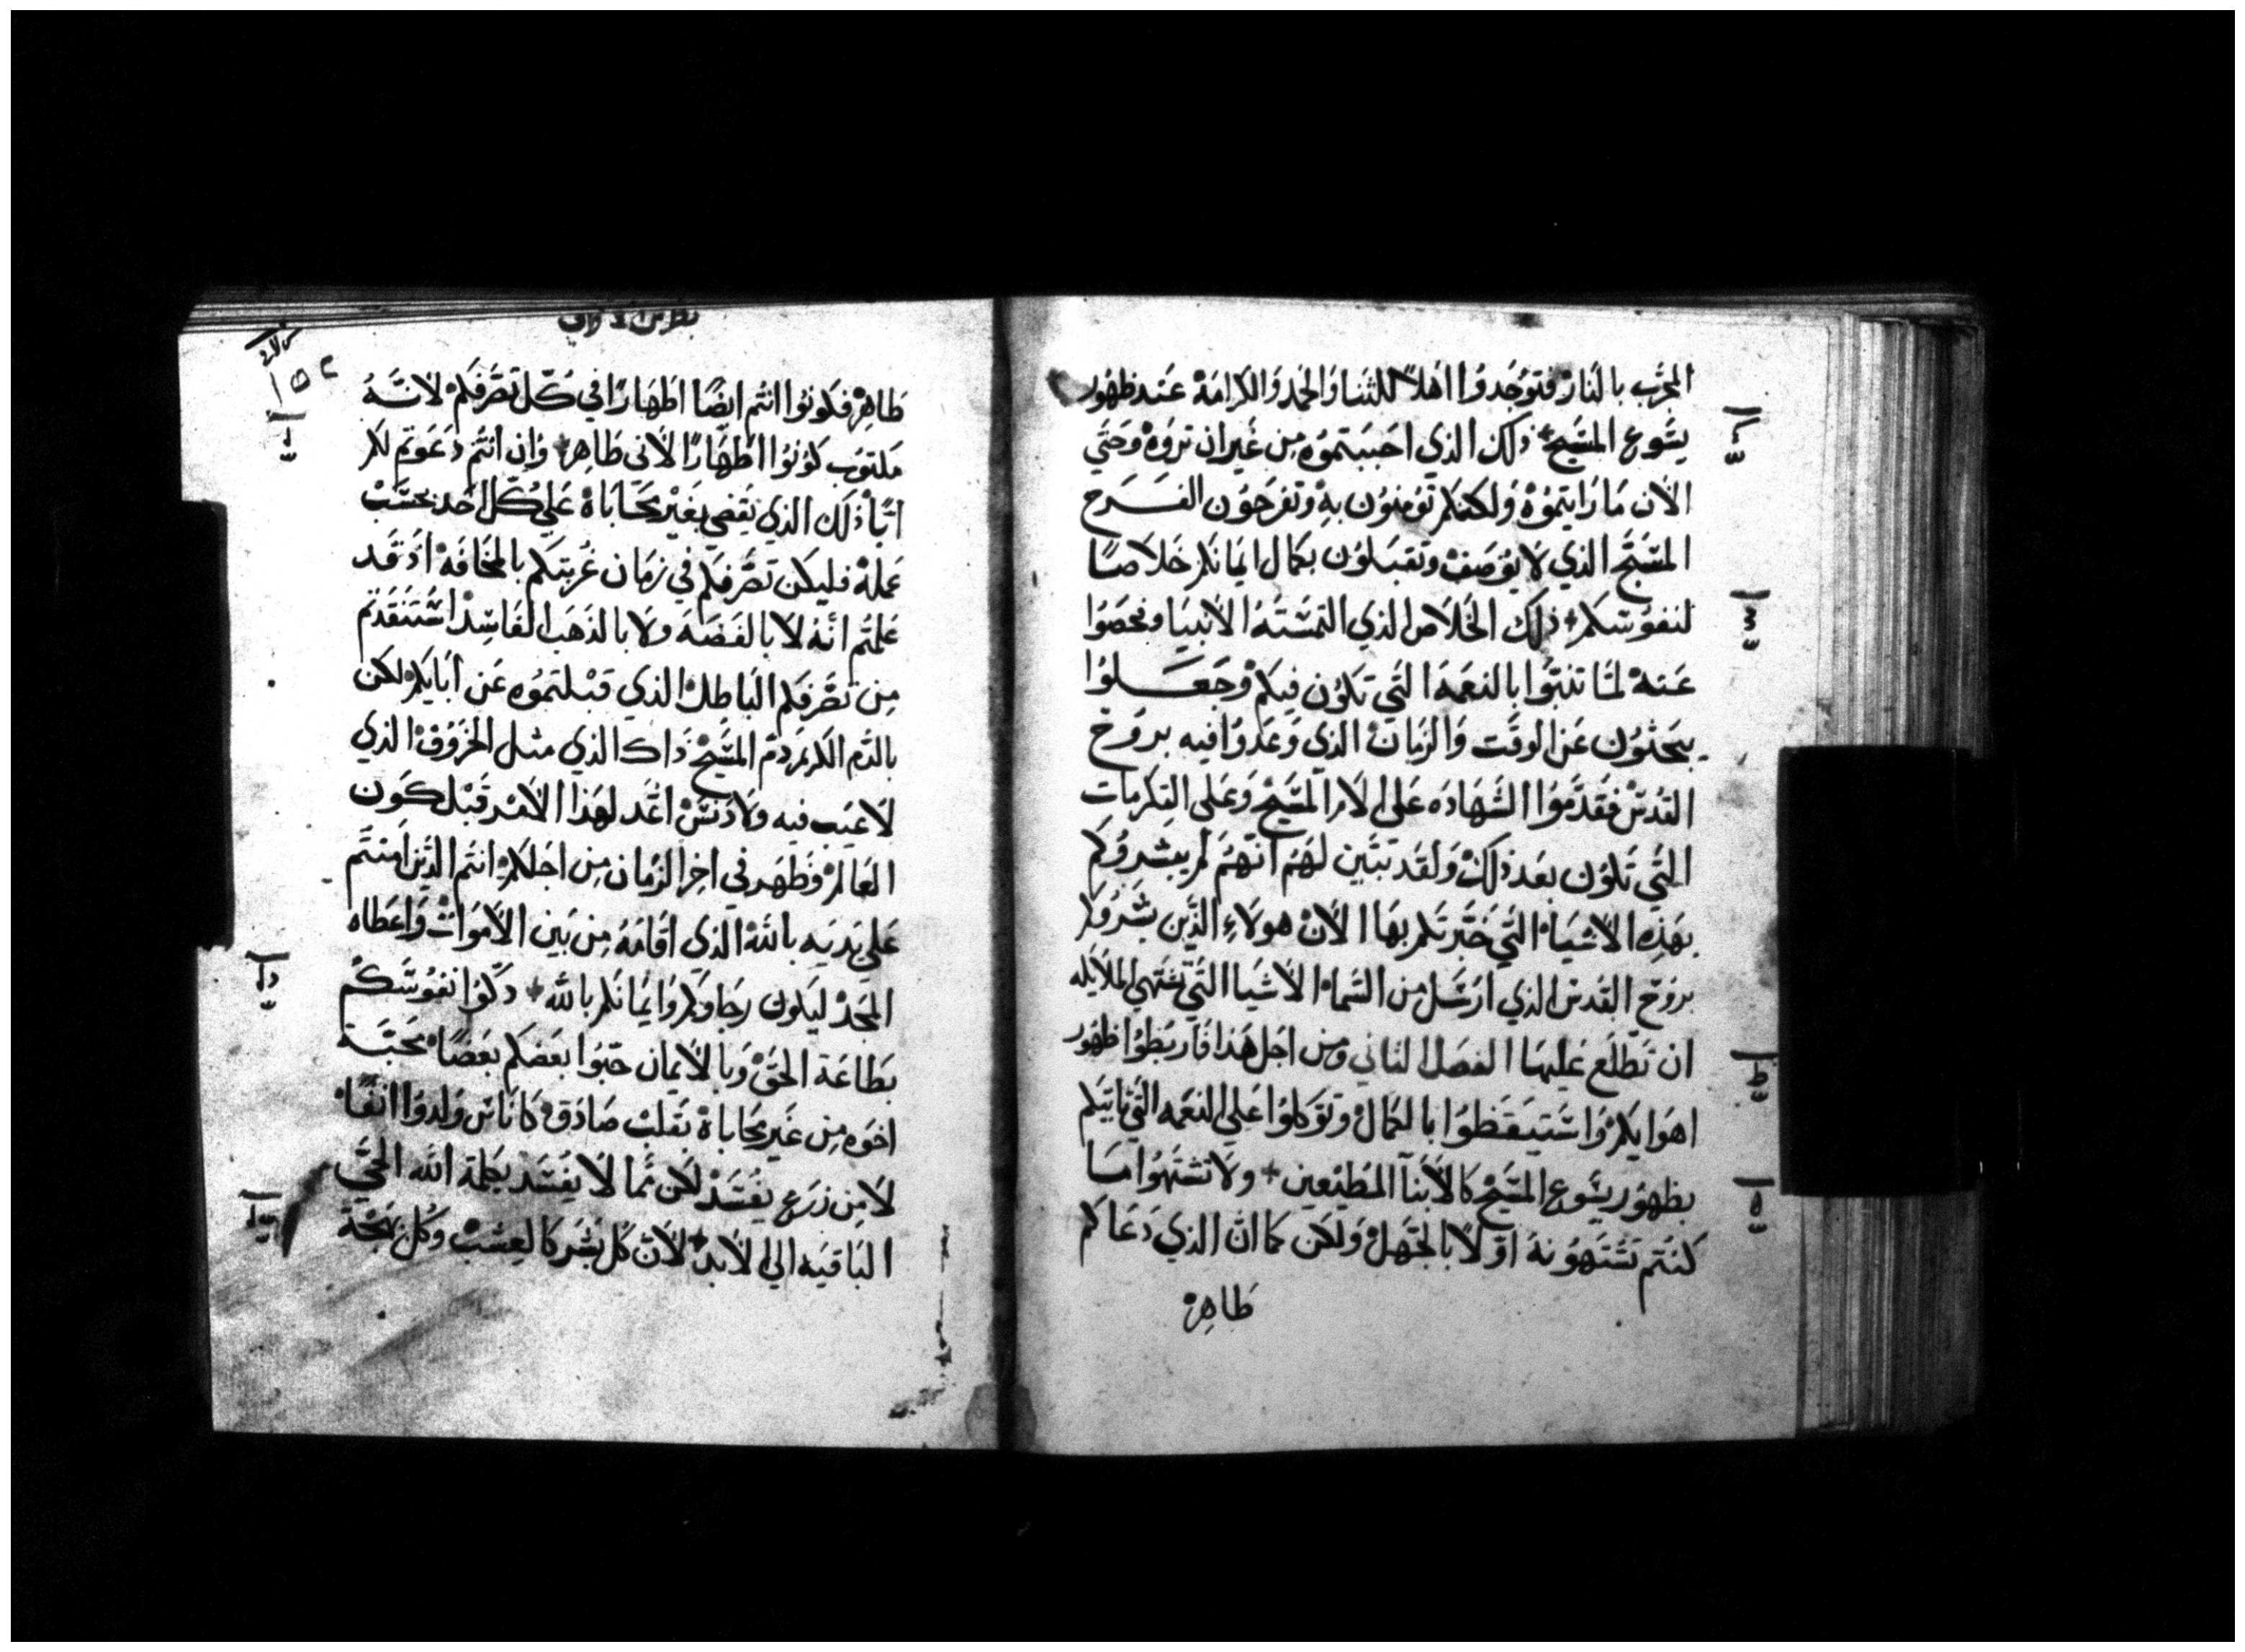 المجرب بالنار فتوجدوا اهلاً للثنا والحمد والكرامة عند ظهور
يسوع المسيح ذلك الذي احببتموه من غير ان تروه وحتي
الان ما رايتموه ولكنكم تومنون به وتفرحون الفرح
المسبح الذي لا يوصف وتقبلون بكمال ايمانكم خلاصًا
لنفوسكم ذلك الخلاص الذي التمسته الانبيا وفحصوا
عنه لما تنبوا بالنعمه التي تكون فيكم وجعلوا
يبحثون عن الوقت والزمان الذي وعدوا فيه بروح
القدس فقدموا الشهاده على الام المسيح وعلى التكرمات
التي تكون بعد ذلك ولقد تبين لهم انهم لم يبشروكم
بهذه الاشياء التي خبرتكم بها الان هولاء الذين بشروكم
بروح القدس الذي ارسل من السماء الاشيا التي تشتهي الملايكه
ان تطلع عليها الفصل الثاني ومن اجل هذا فاربطوا ظهور
اهوايكم واستيقظوا بالكمال وتوكلوا علي النعمه التي تاتيكم
بظهور يسوع المسيح كالابنآ المطيعين ولا تشتهوا ما
كنتم تشتهونه اولًا بالجهل ولكن كما ان الذي دعاكم
طاهر
طاهر فكونوا انتم ايضًا اطهارًا في كل تصرفكم لانه
مكتوب كونوا اطهارًا لاني طاهر وان انتم دعوتم لكم
ابًا ذلك الذي يقضي بغير محاباة علي كل احد بحسب
عمله فليكن تصرفكم في زمان غربتكم بالمخافة اذ قد
علمتم انه لا بالفضه ولا بالذهب الفاسد استنقذتم
من تصرفكم الباطل الذي قبلتموه عن ابايكم لكن
بالدم الكريم دم المسيح ذاك الذي مثل الخروف الذي
لا عيب فيه ولا دنس اعد لهذا الامر قبل كون
العالم وظهر في اخر الزمان من اجلكم انتم الذين امنتم
علي يديه بالله الذي اقامه من بين الاموات واعطاه
المجد ليكون رجاوكم وايمانكم بالله دكوا نفوسكم
بطاعة الحق وبالايمان حبوا بعضكم بعضًا محبة
اخوه من غير محاباة بقلب صادق كاناس ولدوا انفًا
لا من زرع يفسد لكن مما لا يفسد بكلمة الله الحي
الباقيه الي الابد لان كل بشر كالعشب وكل بهجة